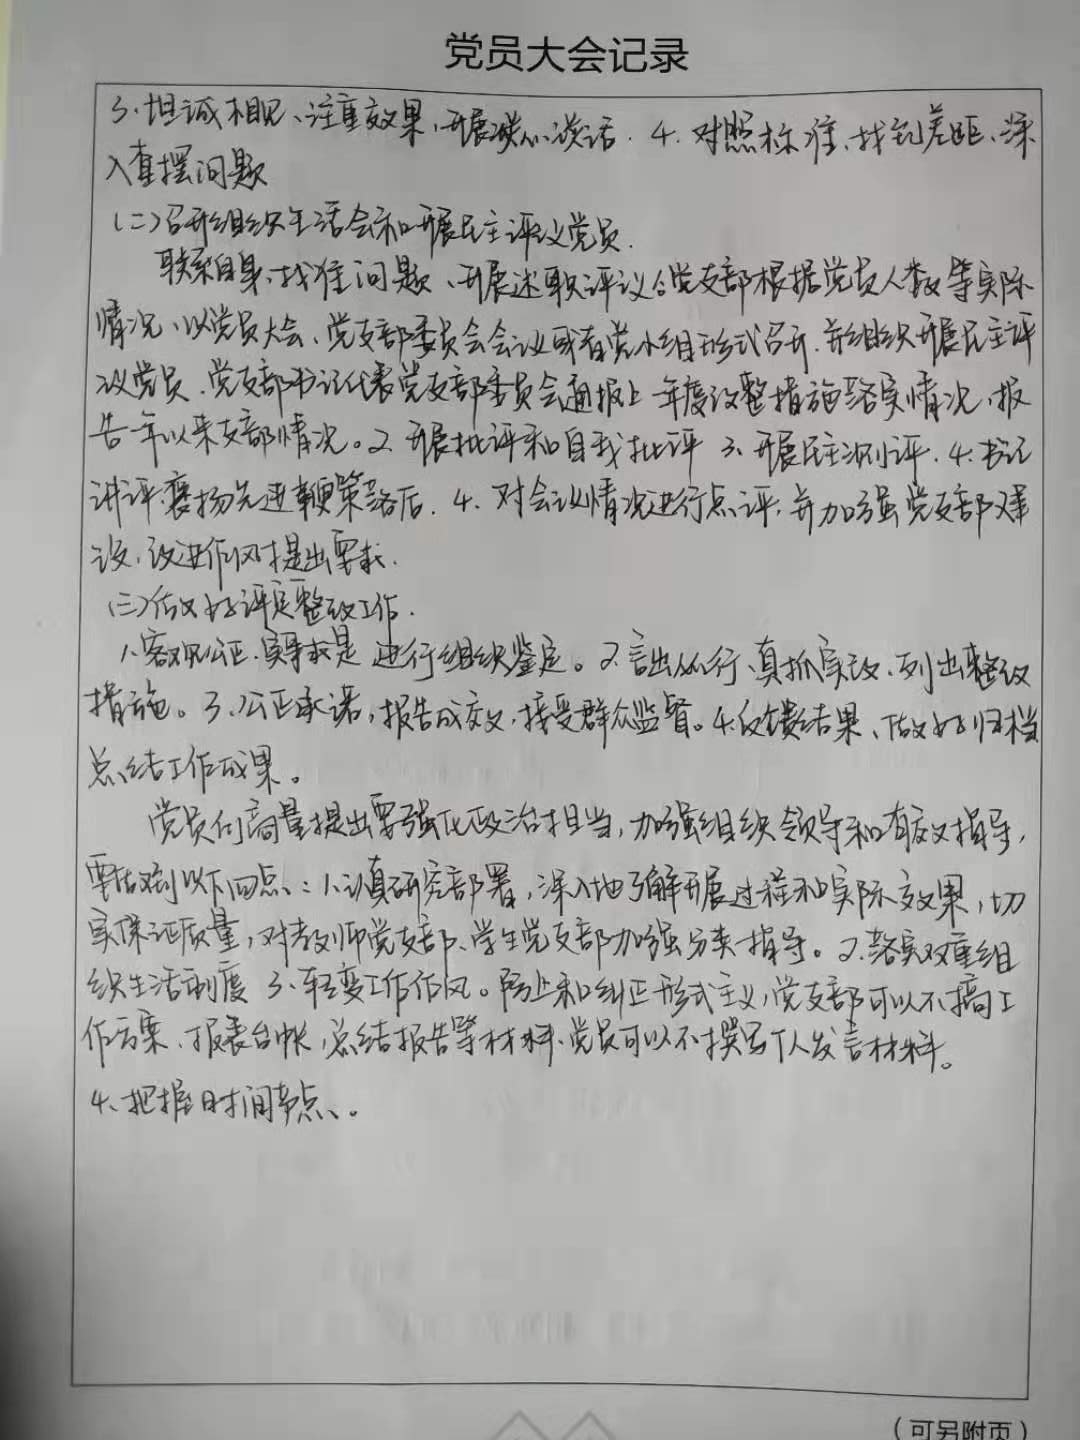 党员大会记录
3、坦诚相见、注重效果,开展谈心谈话. 4. 对照标准、找到差距、深
入查摆问题
(二)召开组织生活会和开展民主评议党员.
联系自身、找准问题、开展述职评议。党支部根据党员人数等实际
情况、以党员大会、党支部委员会会议或者党小组形式召开.并组织开展民主评
议党员.党支部书记代表党支部委员会通报上一年度改整措施落实情况,报
告一年以来支部情况。2. 开展批评和自我批评 3. 开展民主测评. 4. 书记
讲评褒扬先进鞭策落后. 4. 对会议情况进行点评,并加强党支部建
设,改进作风提出要求.
(三)做好评定整改工作.
1、客观公正、实事求是 进行组织鉴定。2. 言出必行、真抓实改、列出整改
措施。3、公正承诺,报告成效,接受群众监督。4.反馈结果、做好归档
总结工作成果。
党员何商量提出要强化政治担当,加强组织领导和有效指导,
要做到以下四点:1.认真研究部署,深入地了解开展过程和实际效果,切
实保证质量,对教师党支部、学生党支部加强分类指导。2.落实双重组
织生活制度 3、转变工作作风。防止和纠正形式主义,党支部可以不搞工
作方案、报表台帐,总结报告等材料、党员可以不撰写个人发言材料。
4、把握时间节点、。
(可另附页)